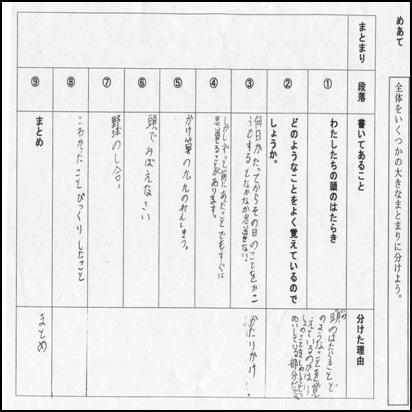 めあて
全体をいくつかの大きなまとまりに分けよう。
まとまり
段落
書いてあること
分けた理由
①
わたしたちの頭のはたらき
②
どのようなことをよく覚えているので
しょうか。
③
何日かたってからその日のことをかこ
うとするとなかなか思い出せない。
④
思い出せることがあります。
⑤
かけ算の九九のれんしゅう。
⑥
頭でおぼえなさい
⑦
野球のし合。
⑧
こわかったことびっくりしたこと
⑨
まとめ
頭のはたらきとど
のようなことを覚
えているのか
かたりかけ
まとめ